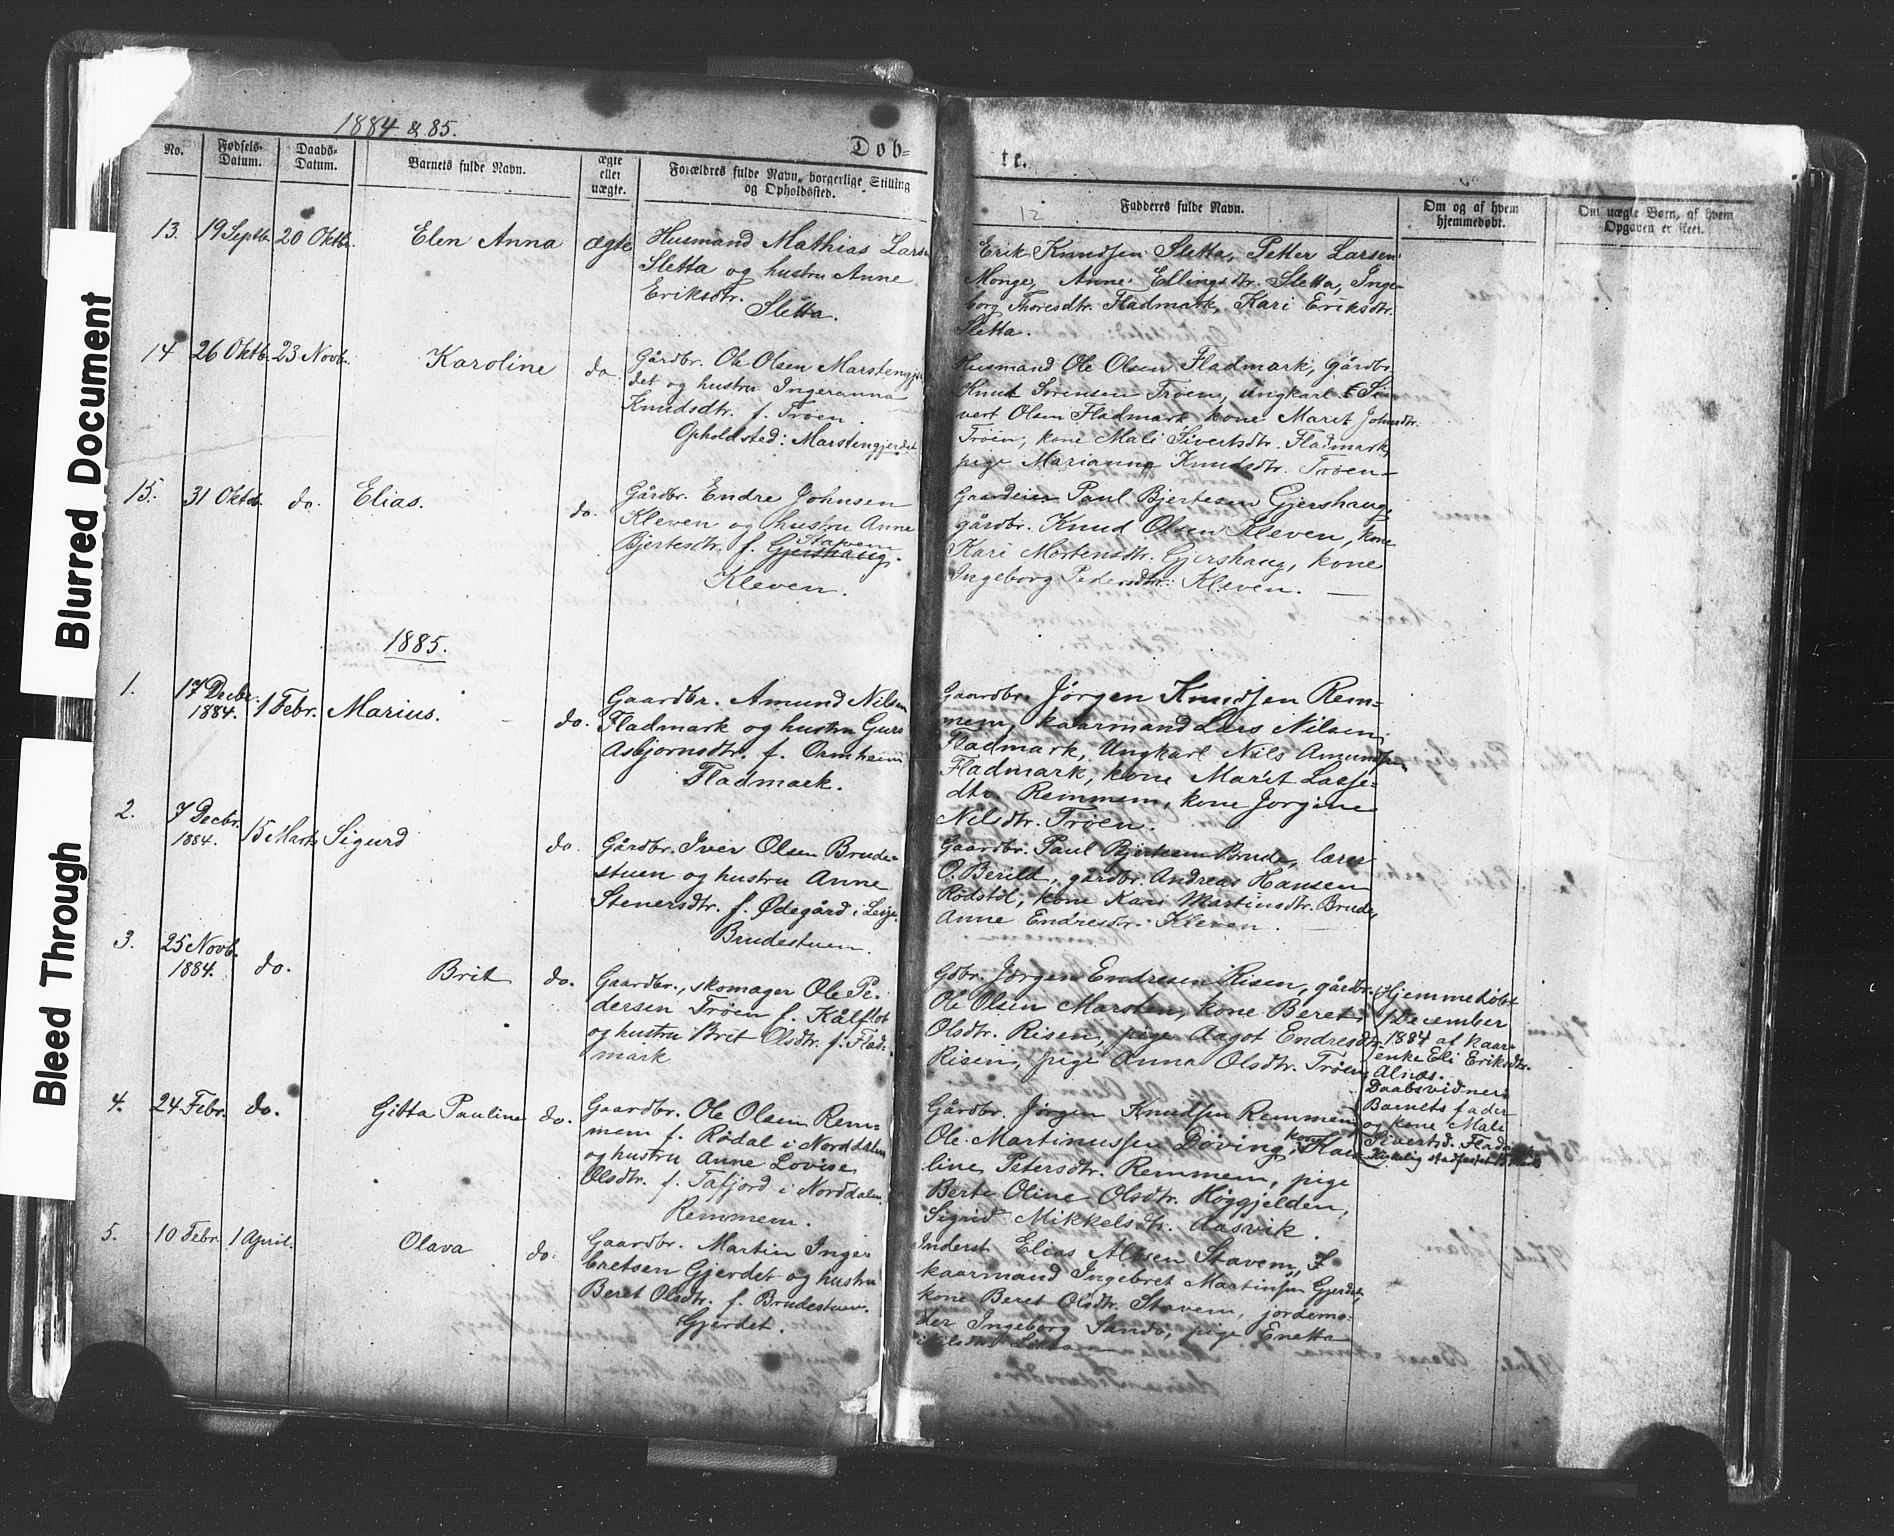 1884 & 85.
Døb-
te.
No.
Fødsels-
Datum.
Daabs-
Datum.
Barnets fulde Navn.
ægte
eller
uægte.
Forældres fulde Navn, borgerlige Stilling
og Opholdssted.
Fadderes fulde Navn.
Om og af hvem
hjemmedøbt.
Om uægte Børn, af hvem
Opgaven er skeet.
12
13. 19 Septb. 20 Oktb. Elen Anna ægte
Husmand Mathias Larsen
Sletta og hustru Anne
Eriksdtr.
Sletta.
Erik Knudsen Sletta, Petter Larsen
Monge, Anne Ellingsdtr. Sletta, Inge-
borg Thoresdtr. Fladmark, Kari Eriksdtr.
Sletta.
14 26 Oktb. 23 Novb. Karoline do.
Gårdbr. Ole Olsen Marstengjer
det og hustru Ingeranna
Knudsdtr. f. Trøen.
Opholdsted: Marstengjerdet
Husmand Ole Olsen Fladmark, Gårdbr.
Knut Sørensen Trøen, ungkarl Si-
vert Olsen Fladmark kone Marit Johnsdtr.
Trøen, kone Mali Sivertsdtr. Fladmark,
pige Marianna Knudsdtr. Trøen
15. 31 Oktob. do. Elias. do.
Gårdbr. Endre Johnsen
Kleven og hustru Anne
Stavem
Bjertesdtr. f. Gjershaug.
Kleven.
Paul Bjertesen Gjershaug,
gårdbr. Knud Olsen Kleven, kone
Kari Mortensdtr. Gjershaug, kone
Ingeborg Pedersdtr. Kleven.
1885.
1. 17 Decbr. 1 Febr. Marius. do.
1884.
Gaardbr. Amund Nilsen
Fladmark og hustru Guro
Asbjørnsdtr. f. Ormheim
Fladmark.
Gaardbr. Jørgen Knudsen Rem-
mem, kaarmand Lars Nilsen
Fladmark, Ungkarl Nils Amundsen
Fladmark, kone Marit Lasse-
dtr. Remmem, kone Jørgine
Nilsdtr. Trøen.
2. 7 Decbr. 15 Marts Sigurd do.
1884.
Gårdbr. Iver Olsen Brude-
stuen og hustru Anne
Stenersdtr. f. Ødegård i Lesje.
Brudestuen.
Gaardbr. Paul Bjertesen Brude, lærer
O. Berild, gårdbr. Andreas Hansen
Rødstøl, kone Kari Martinsdtr. Brude,
Anne Endresdtr. Kleven.
3. 25 Novb. do. Brit do.
1884.
Gaardbr., skomager Ole Pe-
dersen Trøen f. Kålflot
og hustru Brit Olsdtr. f. Flad-
mark
Gdbr. Jørgen Endresen Risen, gårdbr.
Ole Olsen Marsten, kone Beret
Olsdtr. Risen, pige Aagot Endresdtr.
Risen, pige Anna Olsdtr. Trøen
Hjemmedøbt
1 December
1884 af kaar-
enke Eli Eriksdtr.
Alnæs.
Daabsvidner
Barnets fader
og kone Mali
Sivertsd. Fladmark
Kirkelig stadfæstet 15 Marts
4. 24 Febr. do. Gitta Pauline do.
Gaardbr. Ole Olsen Rem-
mem f. Rødal i Norddalen
og hustru Anne Lovise
Olsdtr. f. Tafjord i Norddalen.
Remmem.
Gårdbr. Jørgen Knudsen Remmem
kone
Ole Martinussen Døving,
line Petersdtr. Remmem, pige
Berte Oline Olsdtr. Høggjelden,
Sigrid Mikkelsdtr. Aasvik.
5. 10 Febr. 1 April. Olava do.
Gaardbr. Martin Inge-
bretsen Gjerdet og hustru
Beret Olsdtr. f. Brudestuen.
Gjerdet.
Inderst Elias Stavem,
kaarmand Ingebret Martinsen Gjerdet,
kone Beret Olsdtr. Stavem, jordemo-
der Ingeborg Sandø, pige Enetta
Nilsdtr.
Blurred Document
Bleed Through